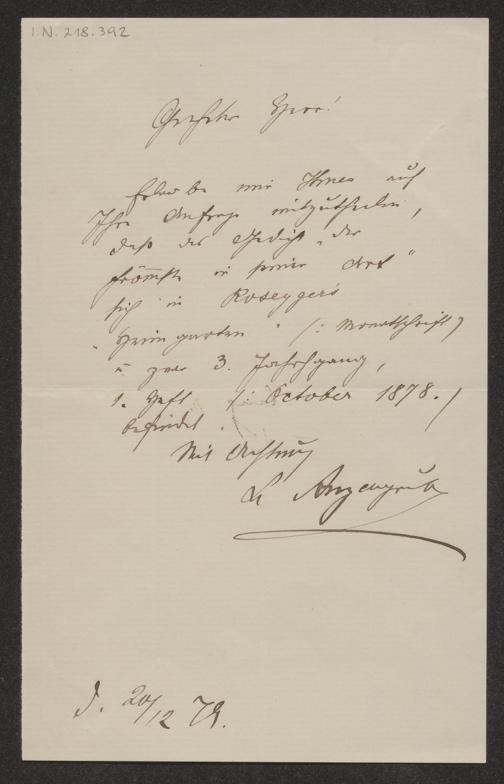 I.N. 218.392
Geehrter Herr!
Erlaube mir Ihnen auf
Ihre Anfrage mitzutheilen,
daß das Gedicht „Der
frömmste in seiner Art“
sich in Rosegger's
„Heimgarten“ (: Monatschrift)
u zwar 3. Jahrgang,
1. Heft (: October 1878. )
befindet.
Mit Achtung
L Anzengruber
d. 20/12 79.